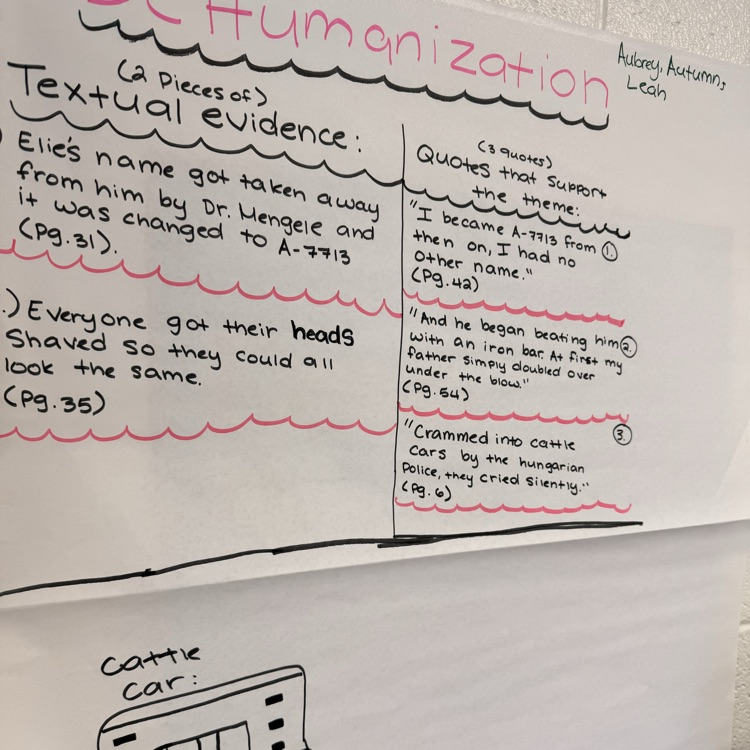 DeHumanization
Aubrey, Autumn,
Leah
(2 Pieces of)
Textual evidence:
) Elie's name got taken away
from him by Dr. Mengele and
it was changed to A-7713
(Pg. 31).
.) Everyone got their heads
Shaved so they could all
look the same.
(Pg. 35)
(3 quotes)
Quotes that support
the theme:
"I became A-7713 from 1.
then on, I had no
other name."
(Pg. 42)
"And he began beating him 2.
with an iron bar. At first my
father simply doubled over
under the blow."
(Pg. 54)
"Crammed into cattle 3.
cars by the hungarian
Police, they cried silently."
(Pg. 6)
Cattle
Car: